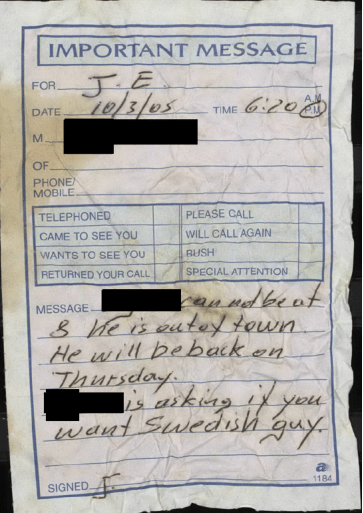 IMPORTANT MESSAGE
FOR J. E.
DATE 10/3/05 TIME 6:20 A.M.
P.M.
M
OF
PHONE/
MOBILE
TELEPHONED PLEASE CALL
CAME TO SEE YOU WILL CALL AGAIN
WANTS TO SEE YOU RUSH
RETURNED YOUR CALL SPECIAL ATTENTION
MESSAGE can not be at
8 he is out of town
He will be back on
Thursday.
is asking if you
want Swedish guy.
a
1184
SIGNED J.